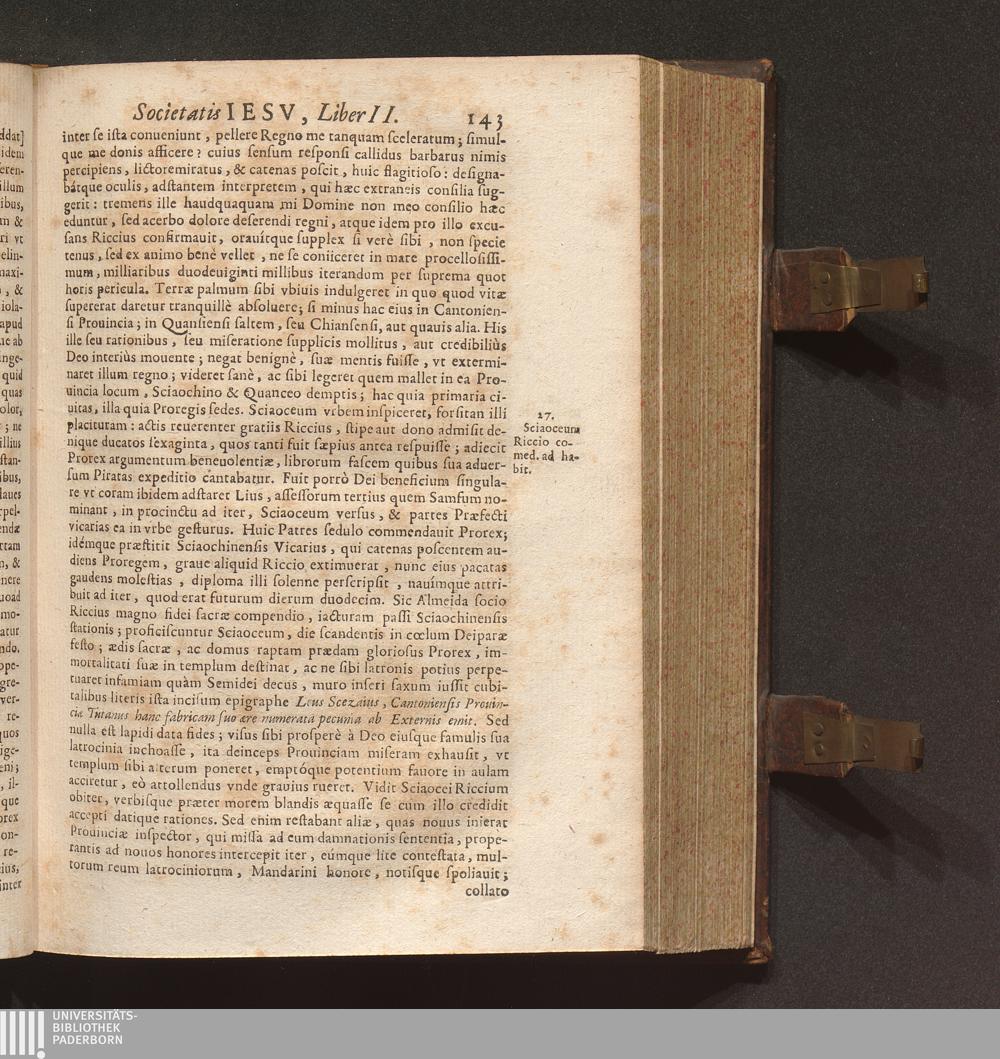 Societatis IESV, Liber II. 143
inter se ista conueniunt, pellere Regno me tanquam sceleratum; simul-
que me donis afficere? cuius sensum responsi callidus barbarus nimis
percipiens, lictorem iratus, & catenas poscit, huic flagitioso: designa-
bátque oculis, adstantem interpretem, qui hæc extraneis consilia sug-
gerit: tremens ille haudquaquam mi Domine non meo consilio hæc
eduntur, sed acerbo dolore deserendi regni, atque idem pro illo excu-
sans Riccius confirmauit, orauítque supplex si verè sibi, non specie
tenus, sed ex animo benè vellet, ne se coniiceret in mare procellosissi-
mum, milliaribus duodeuiginti millibus iterandum per suprema quot
horis pericula. Terræ palmum sibi vbiuis indulgeret in quo quod vitæ
supererat daretur tranquillè absoluere; si minus hac eius in Cantonien-
si Prouincia; in Quansiensi saltem, seu Chiansensi, aut quauis alia. His
ille seu rationibus, seu miseratione supplicis mollitus, aut credibiliùs
Deo interiùs mouente; negat benignè, suæ mentis fuisse, vt extermi-
naret illum regno; videret sanè, ac sibi legeret quem mallet in ea Pro-
uincia locum, Sciaochino & Quanceo demptis; hac quia primaria ci-
uitas, illa quia Proregis sedes. Sciaoceum vrbem inspiceret, forsitan illi
placituram: actis reuerenter gratiis Riccius, stipe aut dono admisit de-
nique ducatos sexaginta, quos tanti fuit sæpius antea respuisse; adiecit
Prorex argumentum beneuolentiæ, librorum fascem quibus sua aduer-
sum Piratas expeditio cantabatur. Fuit porrò Dei beneficium singula-
re vt coram ibidem adstaret Lius, assessorum tertius quem Samfum no-
minant, in procinctu ad iter, Sciaoceum versus, & partes Præfecti
vicarias ea in vrbe gesturus. Huic Patres sedulo commendauit Prorex;
idémque præstitit Sciaochinensis Vicarius, qui catenas poscentem au-
diens Proregem, graue aliquid Riccio extimuerat, nunc eius pacatas
gaudens molestias, diploma illi solenne perscripsit, nauímque attri-
buit ad iter, quod erat futurum dierum duodecim. Sic Almeida socio
Riccius magno fidei sacræ compendio, iacturam passi Sciaochinensis
stationis; proficiscuntur Sciaoceum, die scandentis in cœlum Deiparæ
festo; ædis sacræ, ac domus raptam prædam gloriosus Prorex, im-
mortalitati suæ in templum destinat, ac ne sibi latronis potius perpe-
tuaret infamiam quàm Semidei decus, muro inseri saxum iussit cubi-
talibus literis ista incisum epigraphe Leus Scezaius, Cantoniensis Prouin-
cia Tutanus hanc fabricam suo ære numerata pecunia ab Externis emit. Sed
nulla est lapidi data fides; visus sibi prosperè à Deo eiusque famulis sua
latrocinia inchoasse, ita deinceps Prouinciam miseram exhausit, vt
templum sibi alterum poneret, emptóque potentium fauore in aulam
acciretur, eò attollendus vnde grauius rueret. Vidit Sciaocei Riccium
obiter, verbisque præter morem blandis æquasse se cum illo credidit
accepti datique rationes. Sed enim restabant aliæ, quas nouus inierat
Prouinciæ inspector, qui missa ad eum damnationis sententia, prope-
rantis ad nouos honores intercepit iter, eúmque lite contestata, mul-
torum reum latrociniorum, Mandarini honore, notisque spoliauit;
collato
27.
Sciaoceum
Riccio co-
med. ad ha-
bit.
ddat]
idem
eren-
illum
ibus,
m &
ri vt
elin-
maxi-
, &
iola-
apud
ue ab
inge-
quid
quas
olor,
; ne
illius
stan-
ibus,
laues
rpel-
endæ
rtam
n, &
nere
uoad
mo-
atur
ndo.
ope-
gre-
ver-
re-
quos
ige-
eni;
, il-
que
orex
on-
re-
ius,
inter
UNIVERSITÄTS-
BIBLIOTHEK
PADERBORN